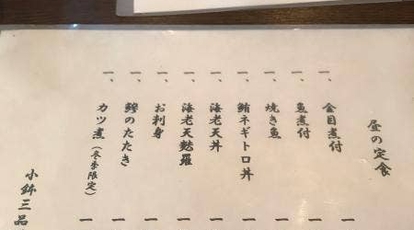 昼の定食
一、金目煮付 一
一、魚煮付 一
一、焼き魚 一
一、鮪ネギトロ丼 一
一、海老天丼 一
一、海老天麩羅 一
一、お刺身 一
一、鯵のたたき 一
一、カツ煮(冬季限定) 一
小鉢三品